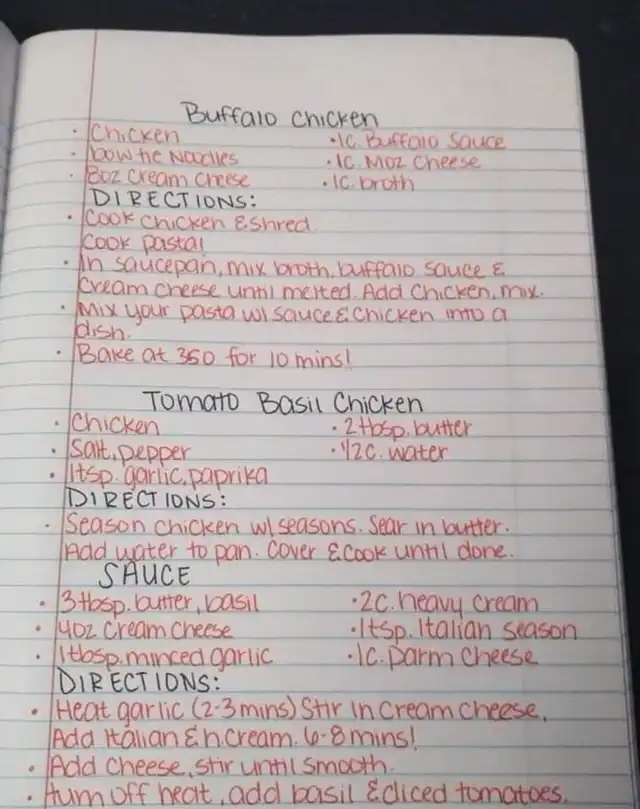 Buffalo Chicken
• Chicken •1c. Buffalo Sauce
• bow tie Noodles •1c. Moz Cheese
• 8oz cream cheese •1c. broth
DIRECTIONS:
• Cook chicken & shred.
Cook pasta!
• In saucepan, mix broth, buffalo sauce &
cream cheese until melted. Add Chicken, mix.
• Mix your pasta w/ sauce & chicken into a
dish.
• Bake at 350 for 10 mins!
Tomato Basil Chicken
• Chicken • 2 tbsp. butter
• Salt, pepper • 1/2c. water
• 1tsp. garlic, paprika
DIRECTIONS:
• Season chicken w/ seasons. Sear in butter.
Add water to pan. Cover & cook until done.
SAUCE
• 3 tbsp. butter, basil •2c. heavy cream
• 4oz cream cheese •1tsp. Italian season
• 1tbsp. minced garlic •1c. parm cheese
DIRECTIONS:
• Heat garlic (2-3 mins) Stir in cream cheese.
Add Italian & h.cream. 6-8 mins!
• Add cheese, stir until smooth.
• turn off heat, add basil & diced tomatoes.